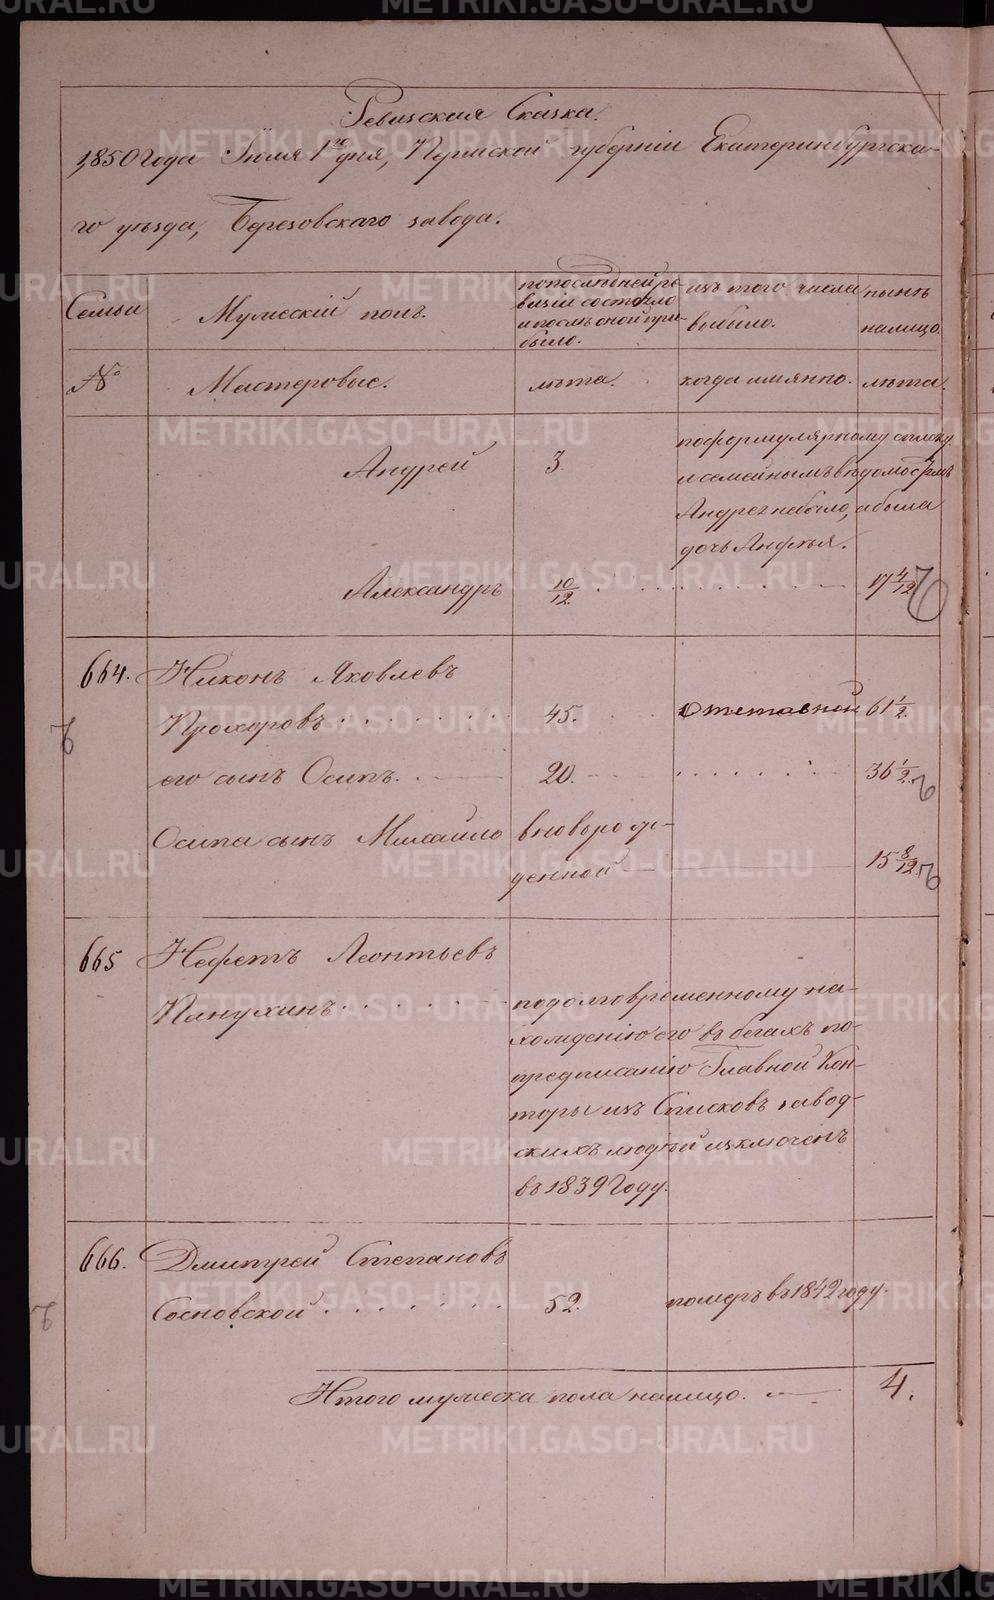 Ревизская Сказка.
1850 года Іюля 1го дня, Пермской губерніи Екатеринбургска-
го уѣзда, Березовскаго завода.
Семьи
Мужескій полъ.
попослѣдней ре-
визіи состояло
и послѣ оной при-
было.
изъ того числа
выбыло.
нынѣ
налицо.
№
Мастеровые.
лѣта.
когда имянно.
лѣта.
Андрей 3. поформулярному списку
и семейнымъ вѣдомостямъ
Андрея небыло, а была
дочь Анфья.
Александръ 10/12 17 4/12
664. Никонъ Яковлевъ
Прохоровъ 45. Отставной 61 1/2
его сынъ Осипъ. 20. 36 1/2
Осипа сынъ Михайло вновь рож-
денной 15 8/12
665 Нефетъ Леонтьевъ
Панухинъ подолговременному на-
хожденію его въ бегахъ по-
предписанію Главной Кон-
торы изъ Списковъ завод-
скихъ людѣй изключенъ
въ 1839 Году.
666. Дмитрей Степановъ
Сосновской 52. померъ въ 1842 году.
Итого мужеска пола налицо. 4.
METRIKI.GASO-URAL.RU